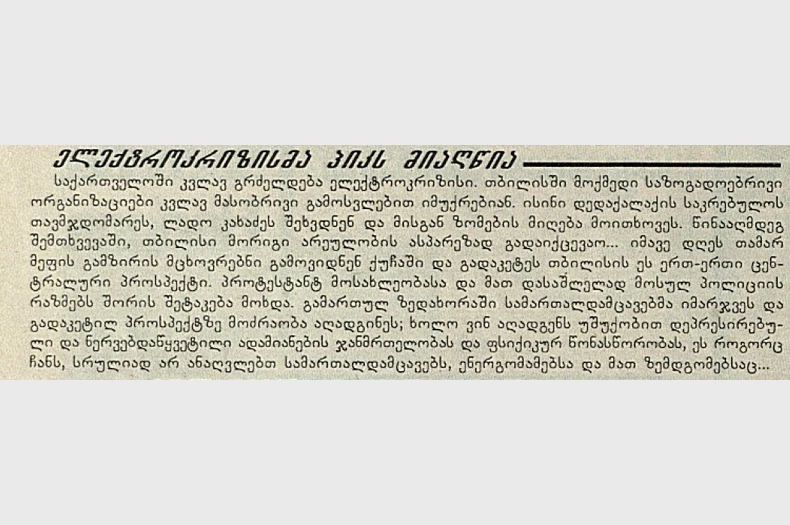 ელექტროკრიზისმა პიკს მიაღწია
საქართველოში კვლავ გრძელდება ელექტროკრიზისი. თბილისში მოქმედი საზოგადოებრივი
ორგანიზაციები კვლავ მასობრივი გამოსვლებით იმუქრებიან. ისინი დედაქალაქის საკრებულოს
თავმჯდომარეს, ლადო კახაძეს შეხვდნენ და მისგან ზომების მიღება მოითხოვეს. წინააღმდეგ
შემთხვევაში, თბილისი მორიგი არეულობის ასპარეზად გადაიქცევაო... იმავე დღეს თამარ
მეფის გამზირის მცხოვრებნი გამოვიდნენ ქუჩაში და გადაკეტეს თბილისის ეს ერთ-ერთი ცენ-
ტრალური პროსპექტი. პროტესტანტ მოსახლეობასა და მათ დასაშლელად მოსულ პოლიციის
რაზმებს შორის შეტაკება მოხდა. გამართულ ზედახორაში სამართალდამცავებმა იმარჯვეს და
გადაკეტილ პროსპექტზე მოძრაობა აღადგინეს; ხოლო ვინ აღადგენს უშუქობით დეპრესირებუ-
ლი და ნერვებდაწყვეტილი ადამიანების ჯანმრთელობას და ფსიქიკურ წონასწორობას, ეს როგორც
ჩანს, სრულიად არ ანაღვლებთ სამართალდამცავებს, ენერგომამებსა და მათ ზემდგომებსაც...